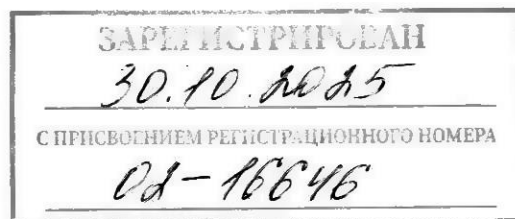 ЗАРЕГИСТРИРОВАН
30.10.2025
С ПРИСВОЕНИЕМ РЕГИСТРАЦИОННОГО НОМЕРА
02-16646